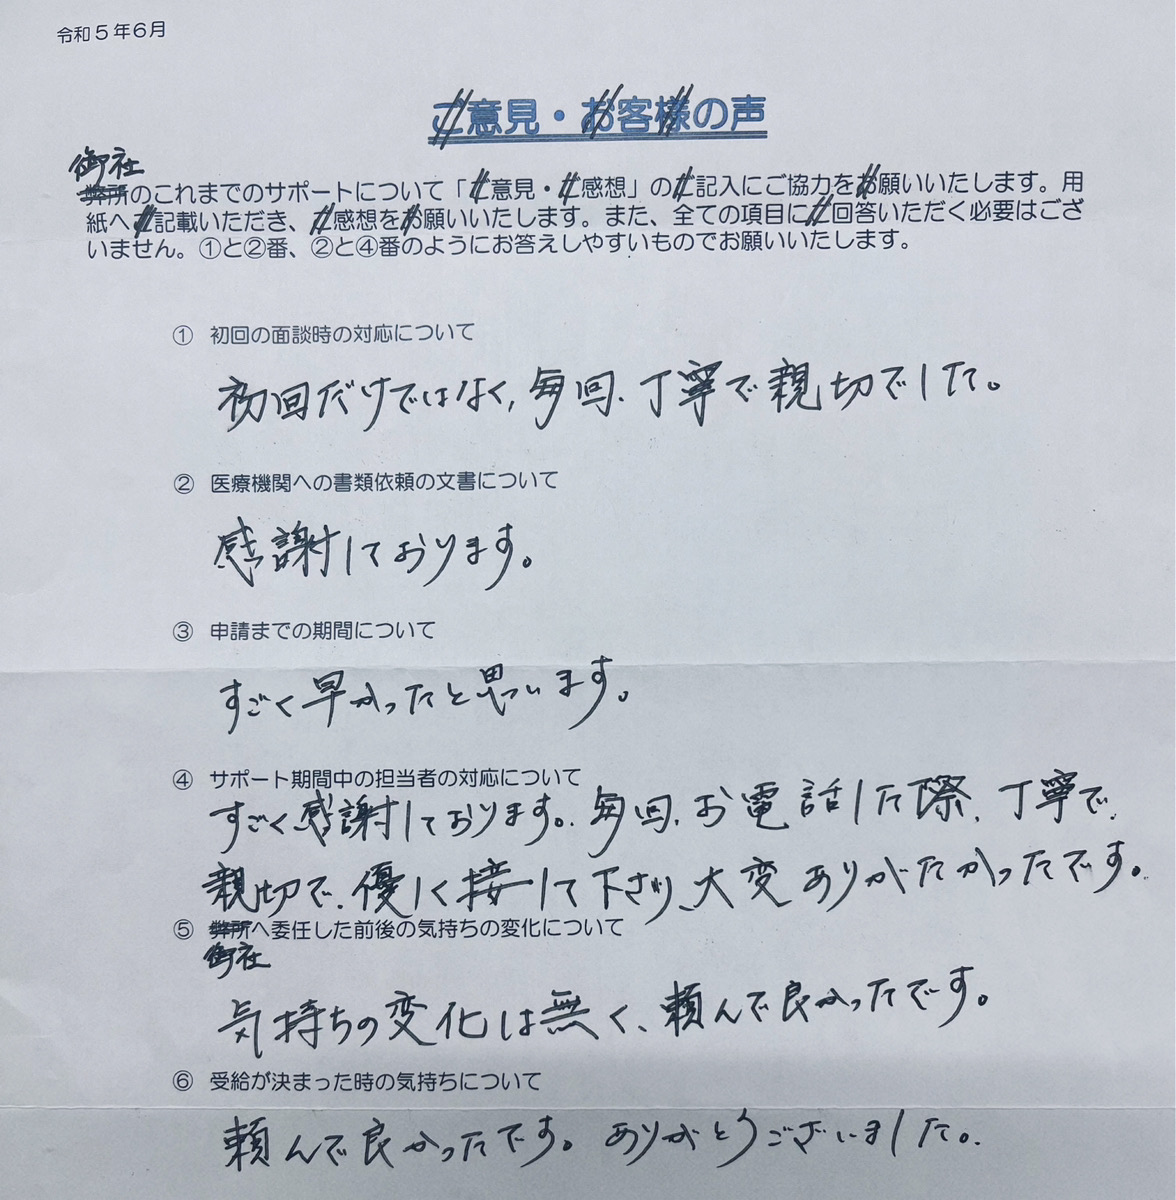 令和5年6月
ご意見・お客様の声
御社
弊所のこれまでのサポートについて「ご意見・ご感想」のご記入にご協力をお願いいたします。用
紙へご記載いただき、ご感想をお願いいたします。また、全ての項目にご回答いただく必要はござ
いません。①と②番、②と④番のようにお答えしやすいものでお願いいたします。
① 初回の面談時の対応について
初回だけではなく、毎回、丁寧で親切でした。
② 医療機関への書類依頼の文書について
感謝しております。
③ 申請までの期間について
すごく早かったと思います。
④ サポート期間中の担当者の対応について
すごく感謝しております。毎回、お電話した際、丁寧で、
親切で、優しく接して下さり、大変ありがたかったです。
⑤ 弊所へ委任した前後の気持ちの変化について
御社
気持ちの変化は無く、頼んで良かったです。
⑥ 受給が決まった時の気持ちについて
頼んで良かったです。ありがとうございました。